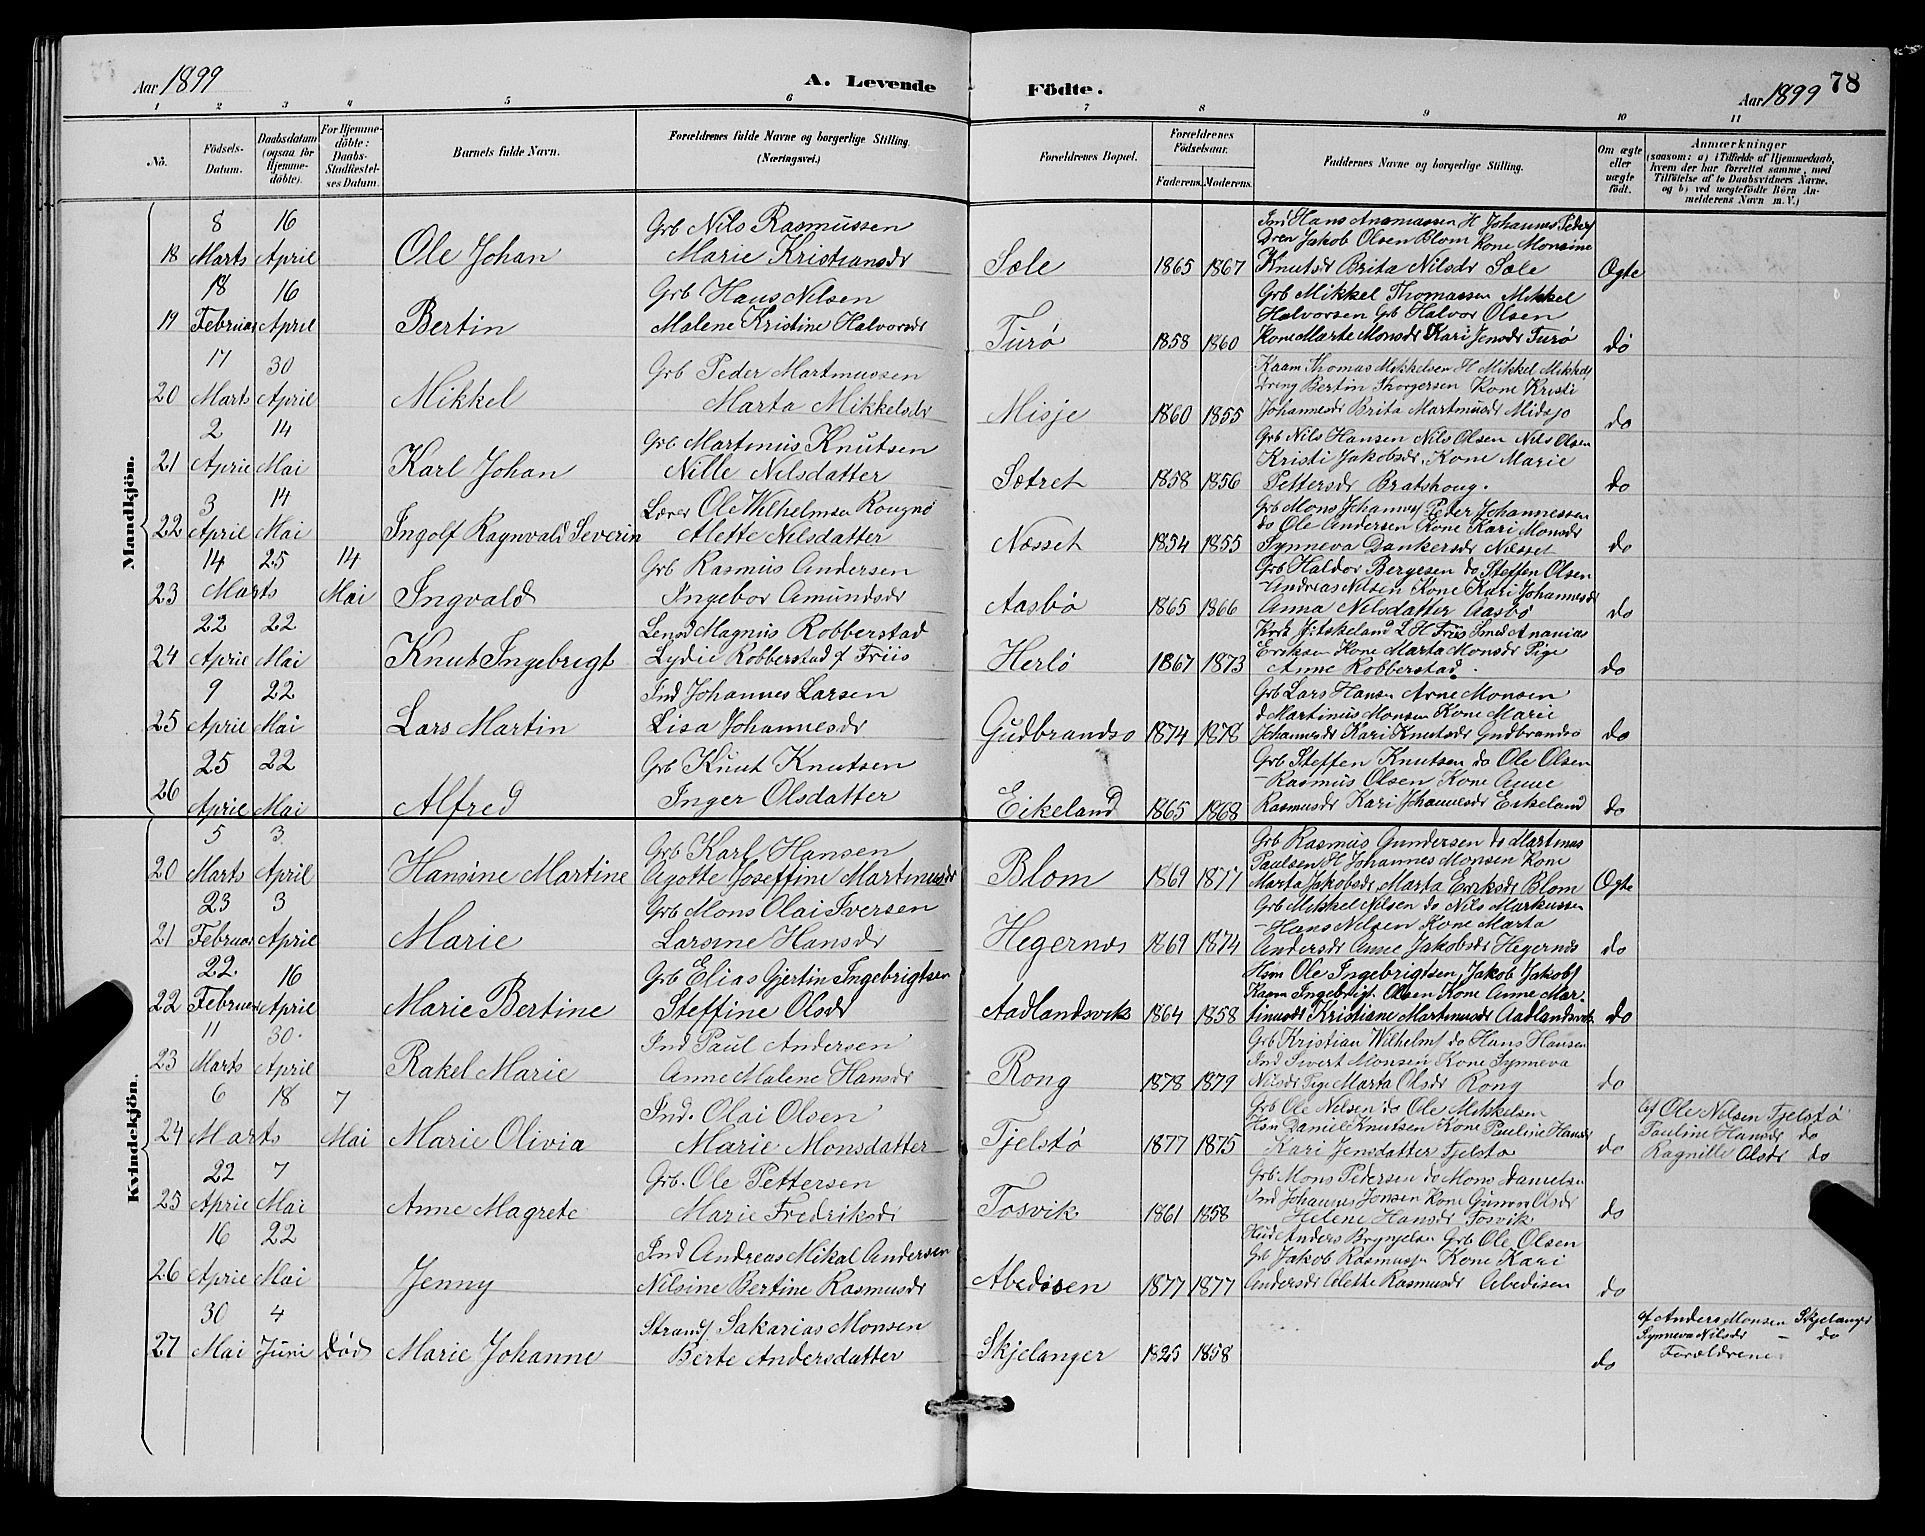 Aar 1899
A. Levende Födte.
Aar 1899
78
1 2 3 4 5 6 7 8 9 10 11
No.
Födsels-Datum.
Daabsdatum (ogsaa for Hjemme-döbte).
For Hjemme-döbte: Daabs-Stadfæstel-ses Datum.
Barnets fulde Navn.
Forældrenes fulde Navne og borgerlige Stilling. (Næringsvei.)
Forældrenes Bopæl.
Forældrenes Födselsaar.
Faderens. Moderens.
Faddernes Navne og borgerlige Stilling.
Om ægte eller uægte födt.
Anmærkninger
(saasom: a) i Tilfælde af Hjemmedaab, hvem der har forrettet samme, med Tilföielse af to Daabsvidners Navne, og b) ved uægtefödte Börn An-melderens Navn m. V.)
Mandkjön.
18 8 Marts 16 April Ole Johan
Grb Nils Rasmussen
Marie Kristiansdr
Sæle 1865 1867
Dreng Jakob Olsen Blom Kone Monsine
Knutsdr Brita Nilsdr Sæle
Ægte
19 18 Februar 16 April Bertin
Grb Hans Nilsen
Malene Kristine Halvorsdr
Turø 1858 1860
Grb Mikkel Thomassen Mikkel
Halvorsen Grb Halvor Olsen
Kone Marte Monsdr Kari Jensdr Turø
do
20 17 Marts 30 April Mikkel
Grb Peder Martinussen
Marta Mikkelsdr
Misje 1860 1855
Kaarm Thomas Mikkelsen H Mikkel Mikkels
Dreng Bertin Thorgersen Kone Kristi
Johannesdr Brita Martinusdr Midsjo
do
21 2 April 14 Mai Karl Johan
Grb Martinus Knutsen
Nille Nilsdatter
Sætret 1858 1856
Grb Nils Hansen Nils Olsen Nils Olsen
Kristi Jakobsdr Kone Marie
Pettersdr Bratshoug.
do
22 3 April 14 Mai Ingolf Ragnvald Severin
Lærer Ole Wilhelmsen Rougnø
Alette Nilsdatter
Næsset 1854 1855
Grb Mons Johannes Peder Johannessen
do Ole Andersen Kone Kari Monsdr
Synneva Dankersdr Næsset
do
23 14 Marts 25 14 Mai Ingvald
Grb Rasmus Andersen
Ingebor Amundsdr
Aasbø 1865 1866
Grb Haldor Bergesen do Steffen Olsen
- Andreas Nilsen Kone Kari Johannesdr
Anna Nilsdatter Aasbø
do
24 22 April 22 Mai Knut Ingebrigt
Lensd Magnus Robberstad
Lydie Robberstad f Friis
Herlø 1867 1873
L H Friis Smed Ananias
Eriksen Kone Marta Monsdr Pige
Anne Robberstad.
do
25 9 April 22 Mai Lars Martin
Ind Johannes Larsen
Lisa Johannesdr
Gudbrandsø 1874 1878
Grb Lars Hansen Arne Monsen
d Martinus Monsen Kone Marie
Johannesdr Kari Knutsdr Gudbrandsø
do
26 25 April 22 Mai Alfred
Grb Knut Knutsen
Inger Olsdatter
Eikeland 1865 1868
Grb Steffen Knutsen do Ole Olsen
- Rasmus Olsen Kone Anne
Rasmusdr Kari Johannesdr Eikeland
do
Kvindekjön.
20 5 Marts 3 April Hansine Martine
Grb Karl Hansen
Agotte Joseffine Martinusdr
Blom 1869 1877
Grb Rasmus Gundersen do Martinus
Paulsen H Johannes Monsen Kone
Marta Jakobsdr Marta Eriksdr Blom
Ægte
21 23 Februar 3 April Marie
Grb Mons Olai Iversen
Larsine Hansdr
Hegernes 1869 1874
Grb Mikkel Nilsen do Nils Markussen
- Hans Nilsen Kone Marta
Andersdr Anne Jakobsdr Hegernes
do
22 22 Februar 16 April Marie Bertine
Grb Elias Gjertin Ingebrigtsen
Steffine Olsdr
Aadlandsvik 1864 1858
Hsm Ole Ingebrigtsen Jakob Jakobs
Kaarm Ingebrigt Olsen Kone Anne Mar-
tinusdr Kristiane Martinusdr Aadlandsvik
do
23 11 Marts 30 April Rakel Marie
Ind Paul Andersen
Anne Malene Hansdr
Rong 1878 1879
Grb Kristian Wilhelms do Hans Hansen
Ind Sivert Monsen Kone Synneva
Nilsdr Pige Marta Olsdr Rong
do
24 6 Marts 18 7 Mai Marie Olivia
Ind. Olai Olsen
Marie Monsdatter
Tjelstø 1877 1875
Grb Ole Nilsen do Ole Mikkelsen
Hsm Daniel Knutsen Kone Pauline Hansdr
Kari Jensdatter Tjelstø
do
af Ole Nilsen Tjelstø
Pauline Hansdr do
Ragnille Olsdr do
25 22 April 7 Mai Anne Magrete
Grb. Ole Pettersen
Marie Fredriksdr
Tosvik 1861 1858
Grb. Mons Pedersen do Mons Danielsen
Ind Johannes Jensen Kone Gunvor Olsdr
Helene Hansdr Tosvik
do
26 16 April 22 Mai Jenny
Ind Andreas Mikal Andersen
Nilsine Bertine Rasmusdr
Abedisen 1877 1877
Anders Brynjelsen Grb Ole Olsen
Grb Jakob Rasmussen Kone Kari
Andersdr Alette Rasmusdr Abedisen
do
27 30 Mai 4 Juni død Marie Johanne
Strands. Sakarias Monsen
Berte Andersdatter
Skjelanger 1825 1858
do
af Anders Monsen Skjelanger
Synneva Nilsdr - do
Forældrene